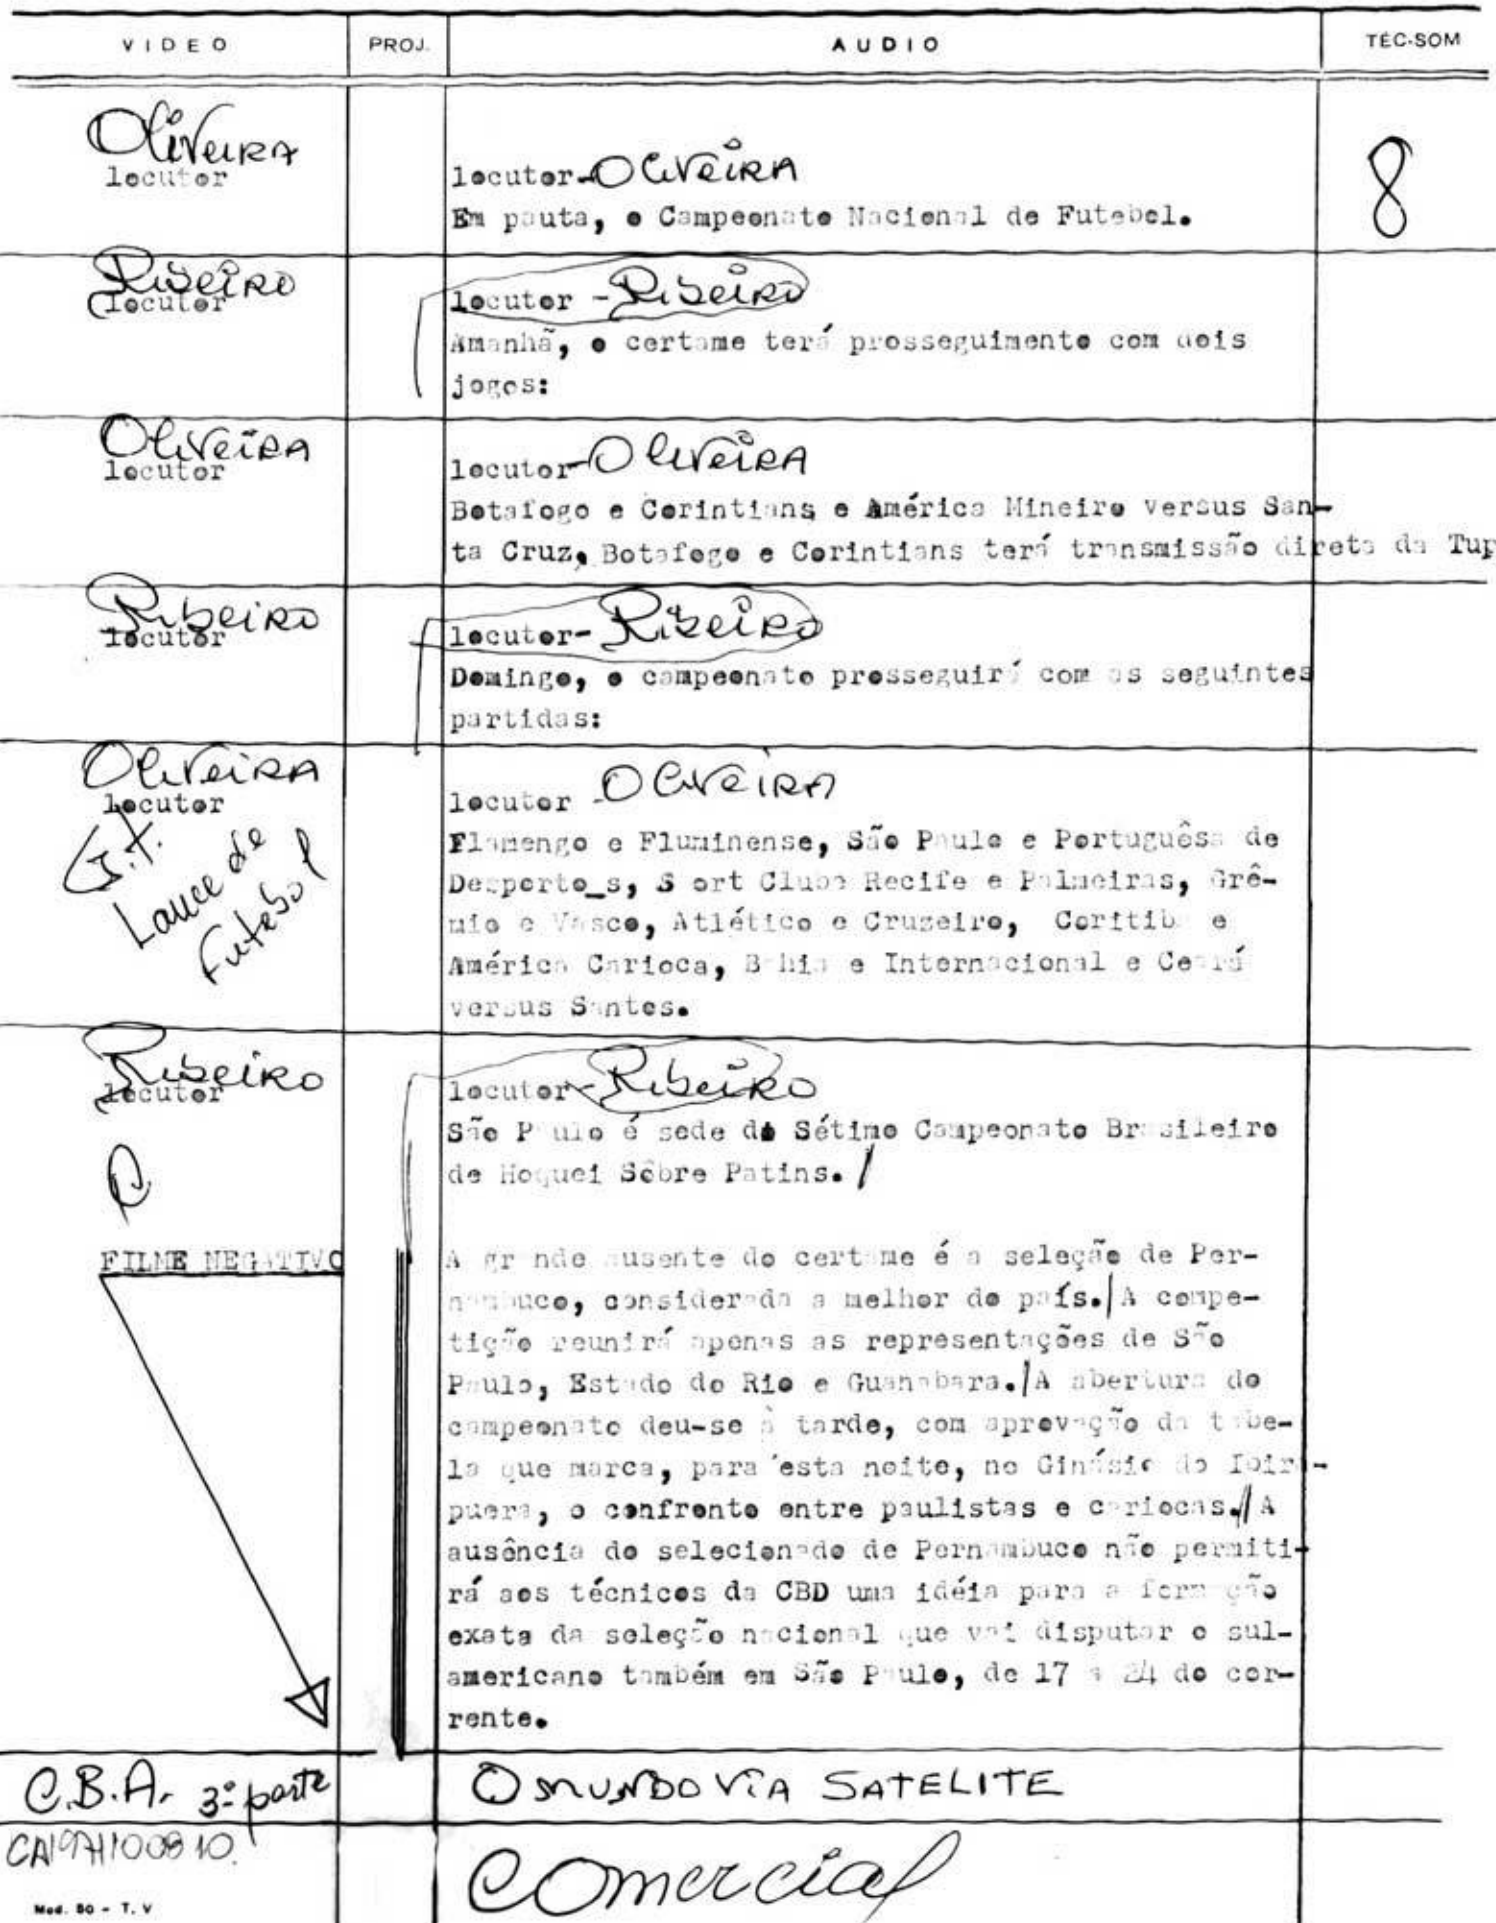 VIDEO PROJ. AUDIO TÉC-SOM
Oliveira
locutor
locutor-Oliveira
8
Em pauta, o Campeonato Nacional de Futebol.
Ribeiro
locutor
locutor - Ribeiro
Amanhã, o certame terá prosseguimento com dois
jogos:
Oliveira
locutor
locutor-Oliveira
Botafogo e Corintians e América Mineiro versus San-
ta Cruz. Botafogo e Corintians terá transmissão direta da Tup
Ribeiro
locutor
locutor- Ribeiro
Domingo, o campeonato prosseguirá com as seguintes
partidas:
Oliveira
locutor
G.T.
Lance de
Futebol
locutor - Oliveira
Flamengo e Fluminense, São Paulo e Portuguêsa de
Desporto_s, S ort Clube Recife e Palmeiras, Grê-
mio e Vasco, Atlético e Cruzeiro, Coritiba e
América Carioca, Bahia e Internacional e Ceará
versus Santos.
Ribeiro
locutor
locutor-Ribeiro
São Paulo é sede do Sétimo Campeonato Brasileiro
de Hoquei Sôbre Patins. /
FILME NEGATIVO
A grande ausente do certame é a seleção de Per-
nambuco, considerada a melhor do país./A compe-
tição reunirá apenas as representações de São
Paulo, Estado do Rio e Guanabara./A abertura do
campeonato deu-se à tarde, com aprovação da tabe-
la que marca, para esta noite, no Ginásio do Ibira-
puera, o confronto entre paulistas e cariocas.//A
ausência do selecionado de Pernambuco não permiti-
rá aos técnicos da CBD uma idéia para a formação
exata da seleção nacional que vai disputar o sul-
americano também em São Paulo, de 17 a 24 do cor-
rente.
C.B.A. 3ª parte
O MUNDO VIA SATELITE
Comercial
Mod. 50 - T. V